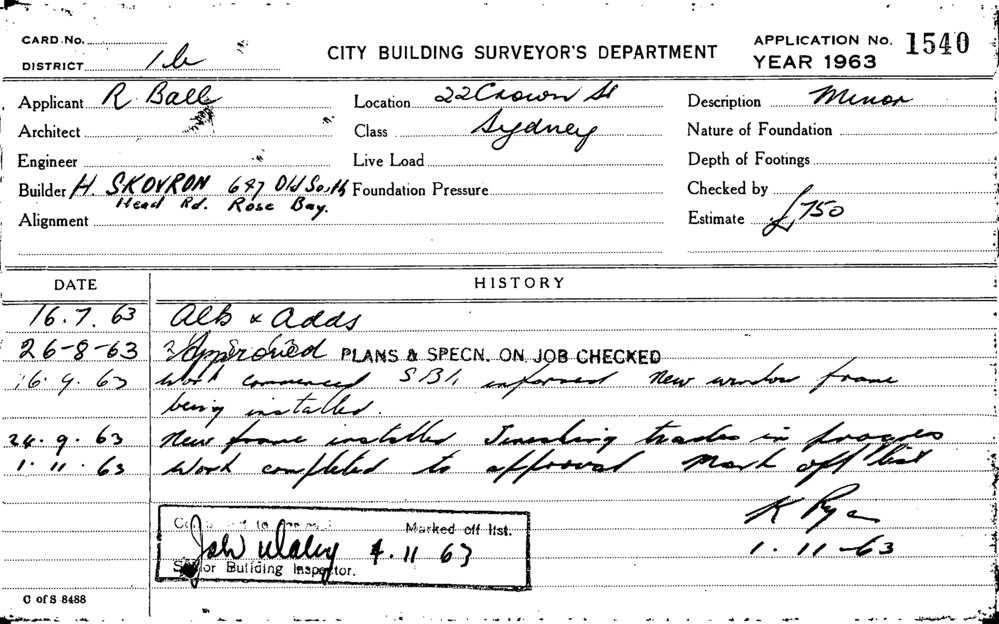 CARD No.
DISTRICT 1b
CITY BUILDING SURVEYOR'S DEPARTMENT
APPLICATION No. 1540
YEAR 1963
Applicant R. Ball
Location 22 Crown St
Description Minor
Architect
Class Sydney
Nature of Foundation
Engineer
Live Load
Depth of Footings
Builder H. SKOVRON 687 Old South
Head Rd. Rose Bay.
Foundation Pressure
Checked by
Alignment
Estimate £750
DATE HISTORY
16.7.63 Alts & Adds
26-8-63 Approved PLANS & SPECN. ON JOB CHECKED
16.9.63 Work commenced S.B.I. informed New window frame
being installed.
24.9.63 New frame installed Finishing trades in progress
1.11.63 Work completed to approval Mark off list
K Rya
1.11-63
to Marked off list.
4 11 63
Senior Building Inspector.
C of S 8488